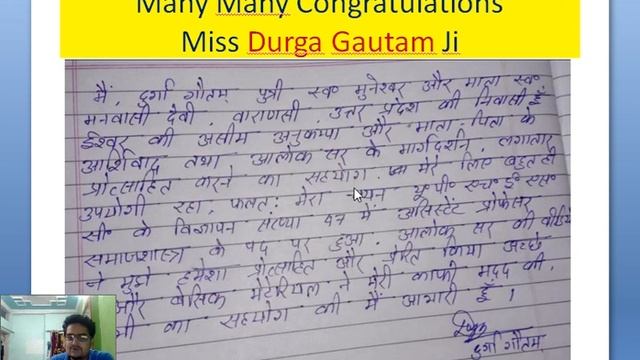 Many Many Congratulations
Miss Durga Gautam Ji
मैं, दुर्गा गौतम् पुत्री स्व० मुनेश्वर और माता स्व०
मनवासी देवी, वाराणसी, उत्तर प्रदेश की निवासी हूँ
ईश्वर की असीम अनुकम्पा और माता-पिता के
आर्शिवाद तथा आलोक सर के मार्गदर्शन, लगातार
प्रोत्साहित करने का सहयोग मेरे लिए बहुत ही
उपयोगी रहा, फलतः मेरा चयन यू० पी० एच० ई० एस०
सी० के विज्ञापन संख्या 47 में असिस्टेंट प्रोफेसर
समाजशास्त्र के पद पर हुआ, आलोक सर की वीडियो
ने मुझे हमेशा प्रोत्साहित और प्रेरित किया अच्छे
और बेसिक मैटेरियल ने मेरी काफी मदद की,
का सहयोग की मैं आभारी हूँ ।
दुर्गा गौतम्